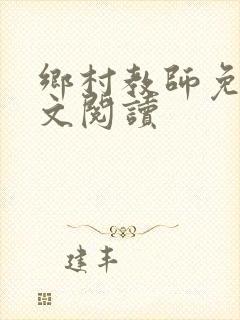 鄉村教師免
文閱讀
建丰